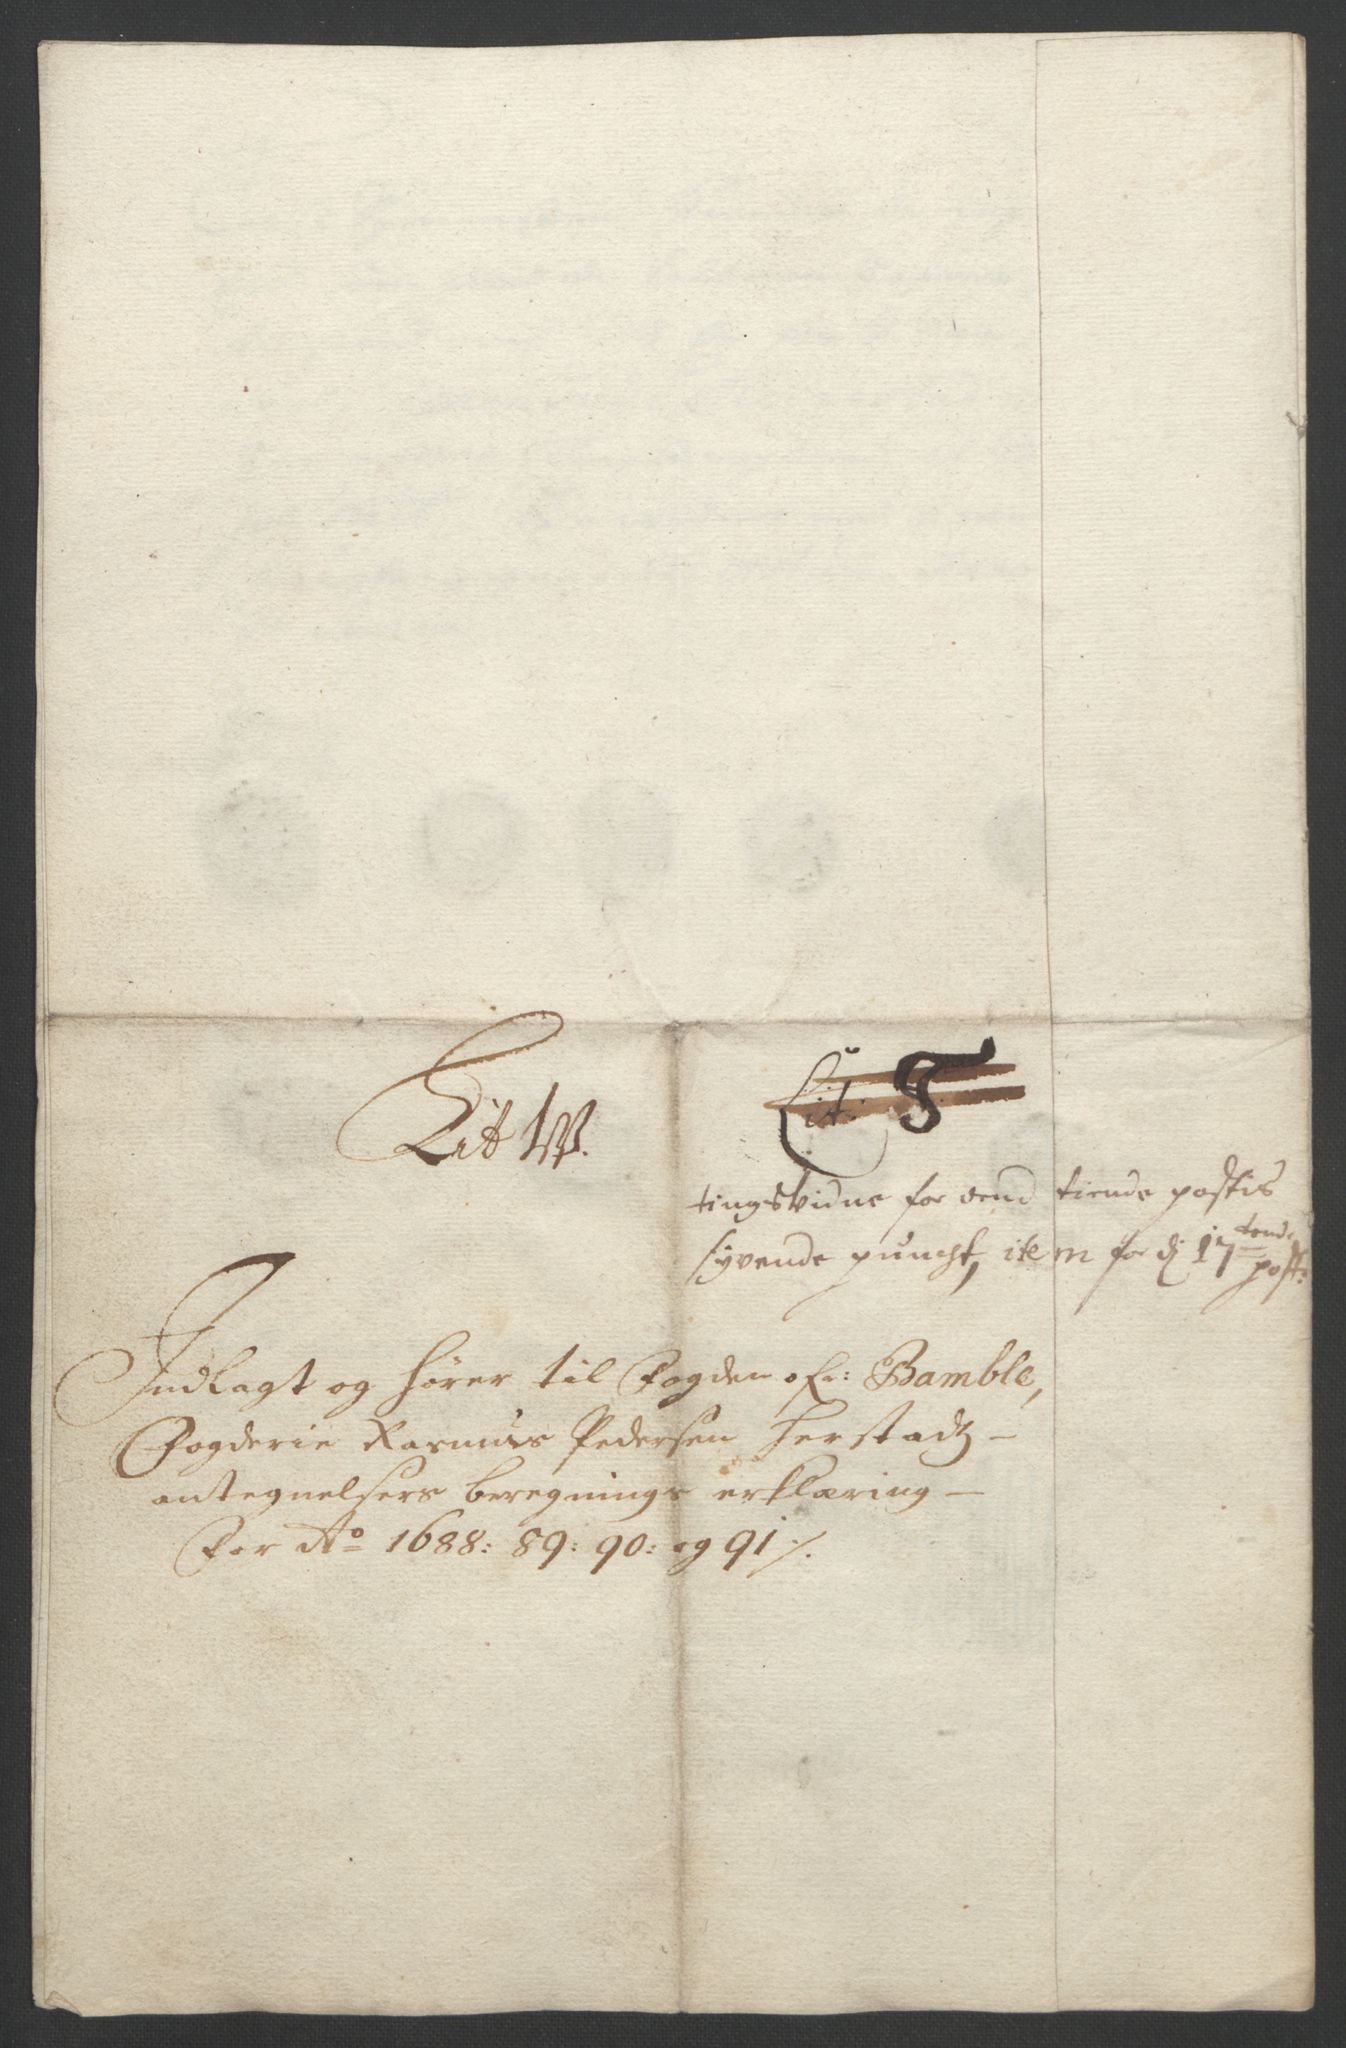 Lit W.
Lit: T
tingsvidne for dend tiende postis
syvende punckt, item for dj 17tende post:
Indlagt og hører til Fogden ofr: Bamble,
Fogderie Rasmus Pedersen Herstadz
antegnelsers beregnings erklæring
For Ao 1688: 89: 90: og 91 ⁒